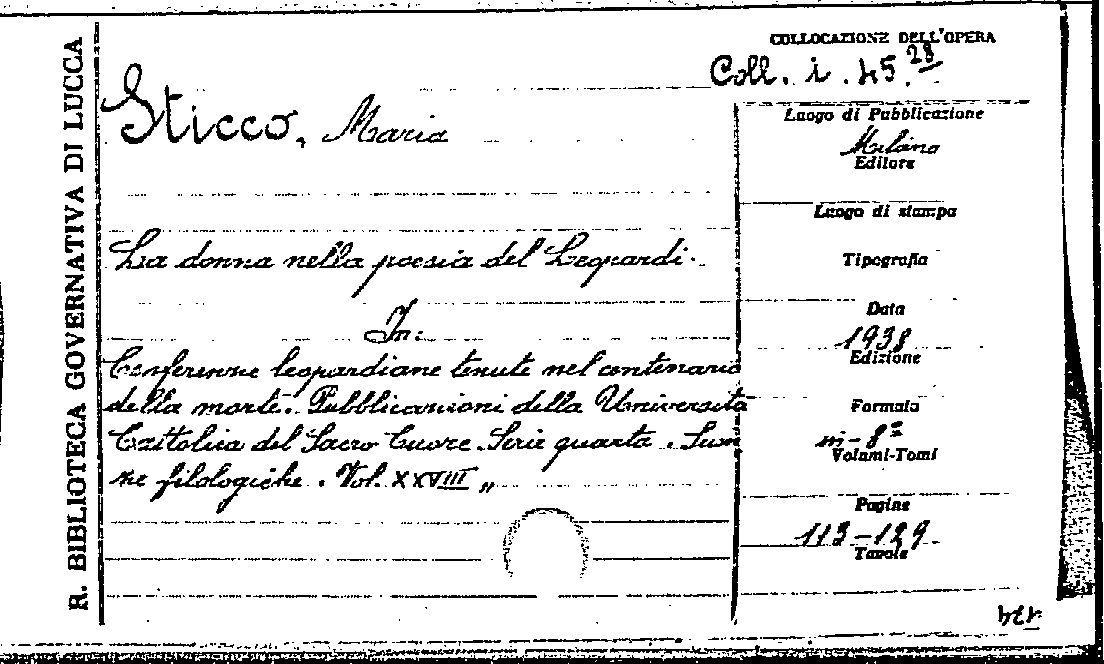 R. BIBLIOTECA GOVERNATIVA DI LUCCA
COLLOCAZIONE DELL'OPERA
Coll. i. 45.28
Sticco, Maria
La donna nella poesia del Leopardi.
In:
Conferenze leopardiane tenute nel centenario
della morte. Pubblicazioni della Università
Cattolica del Sacro Cuore. Serie quarta.
ne filologiche. Vol. XXVIII„
Luogo di Pubblicazione
Milano
Editore
Luogo di stampa
Tipografia
Data
1938
Edizione
Formato
in-8º
Volumi-Tomi
Pagine
113-129
Tavole